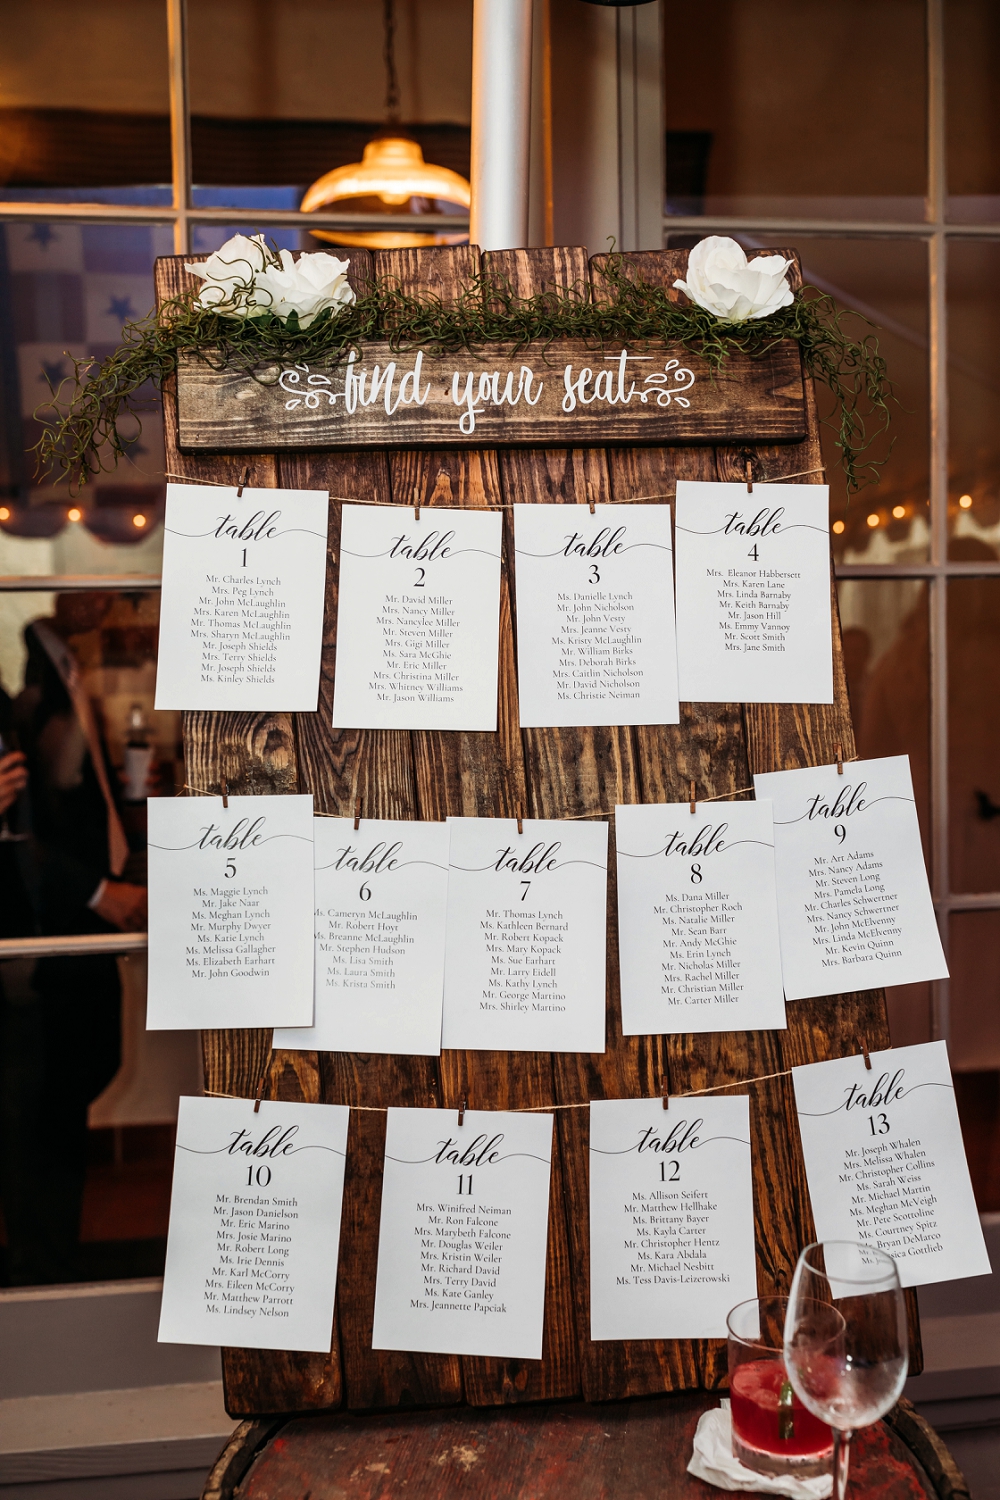 find your seat
table
1
Mr. Charles Lynch
Mrs. Peg Lynch
Mr. John McLaughlin
Mrs. Karen McLaughlin
Mr. Thomas McLaughlin
Mrs. Sharyn McLaughlin
Mr. Joseph Shields
Mrs. Terry Shields
Mr. Joseph Shields
Ms. Kinley Shields
table
2
Mr. David Miller
Mrs. Nancy Miller
Mrs. Nancylee Miller
Mr. Steven Miller
Mrs. Gigi Miller
Ms. Sara McGhie
Mr. Eric Miller
Mrs. Christina Miller
Mrs. Whitney Williams
Mr. Jason Williams
table
3
Ms. Danielle Lynch
Mr. John Nicholson
Mr. John Vesty
Mrs. Jeanne Vesty
Ms. Kristy McLaughlin
Mr. William Birks
Mrs. Deborah Birks
Mrs. Caitlin Nicholson
Mr. David Nicholson
Ms. Christie Neiman
table
4
Mrs. Eleanor Habbersett
Mrs. Karen Lane
Mrs. Linda Barnaby
Mr. Keith Barnaby
Mr. Jason Hill
Ms. Emmy Vannoy
Mr. Scott Smith
Mrs. Jane Smith
table
5
Ms. Maggie Lynch
Mr. Jake Naar
Ms. Meghan Lynch
Mr. Murphy Dwyer
Ms. Katie Lynch
Ms. Melissa Gallagher
Ms. Elizabeth Earhart
Mr. John Goodwin
table
6
Ms. Cameryn McLaughlin
Mr. Robert Hoyt
Ms. Breanne McLaughlin
Mr. Stephen Hudson
Ms. Lisa Smith
Ms. Laura Smith
Ms. Krista Smith
table
7
Mr. Thomas Lynch
Ms. Kathleen Bernard
Mr. Robert Kopack
Mrs. Mary Kopack
Ms. Sue Earhart
Mr. Larry Eidell
Ms. Kathy Lynch
Mr. George Martino
Mrs. Shirley Martino
table
8
Ms. Dana Miller
Mr. Christopher Roch
Ms. Natalie Miller
Mr. Sean Barr
Mr. Andy McGhie
Ms. Erin Lynch
Mr. Nicholas Miller
Mrs. Rachel Miller
Mr. Christian Miller
Mr. Carter Miller
table
9
Mr. Art Adams
Mrs. Nancy Adams
Mr. Steven Long
Mrs. Pamela Long
Mr. Charles Schwertner
Mrs. Nancy Schwertner
Mr. John McElvenny
Mrs. Linda McElvenny
Mr. Kevin Quinn
Mrs. Barbara Quinn
table
10
Mr. Brendan Smith
Mr. Jason Danielson
Mr. Eric Marino
Mrs. Josie Marino
Mr. Robert Long
Ms. Irie Dennis
Mr. Karl McCorry
Mrs. Eileen McCorry
Mr. Matthew Parrott
Ms. Lindsey Nelson
table
11
Mrs. Winifred Neiman
Mr. Ron Falcone
Mrs. Marybeth Falcone
Mr. Douglas Weiler
Mrs. Kristin Weiler
Mr. Richard David
Mrs. Terry David
Ms. Kate Ganley
Mrs. Jeannette Papciak
table
12
Ms. Allison Seifert
Mr. Matthew Hellhake
Ms. Brittany Bayer
Ms. Kayla Carter
Mr. Christopher Hentz
Ms. Kara Abdala
Mr. Michael Nesbitt
Ms. Tess Davis-Leizerowski
table
13
Mr. Joseph Whalen
Mrs. Melissa Whalen
Mr. Christopher Collins
Ms. Sarah Weiss
Mr. Michael Martin
Ms. Meghan McVeigh
Mr. Pete Scottoline
Ms. Courtney Spitz
Mr. Bryan DeMarco
Gottlieb